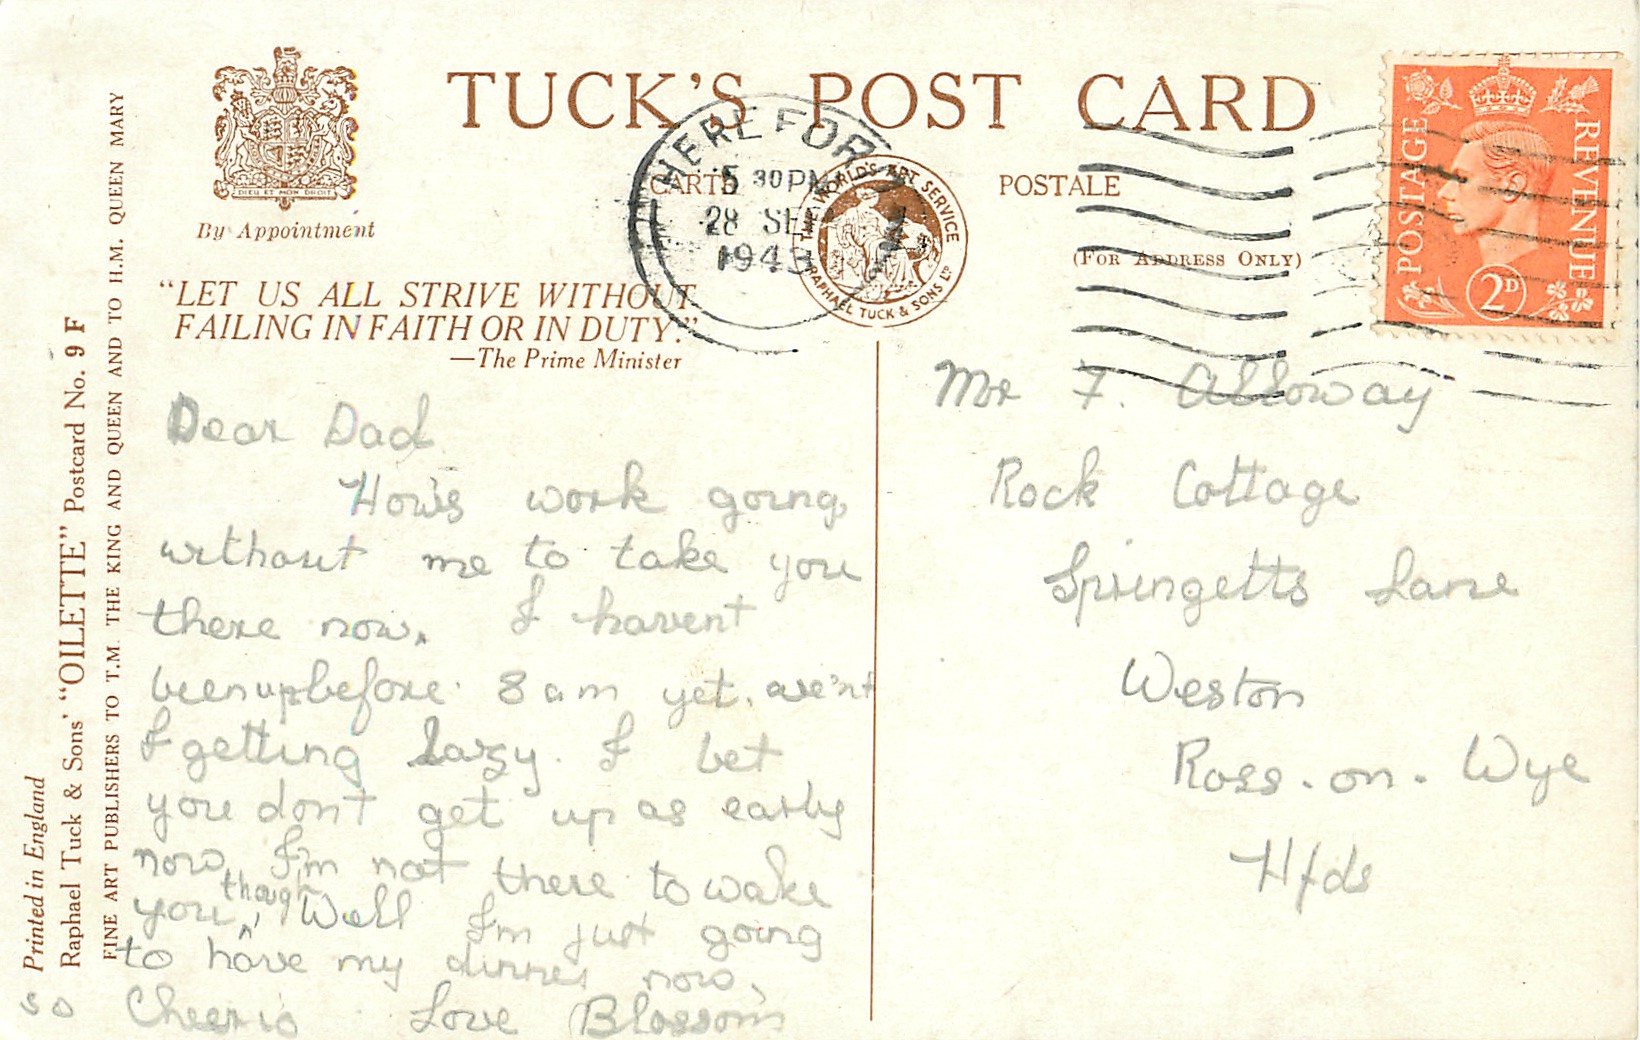 TUCK'S POST CARD
By Appointment
DIEU ET MON DROIT
CARTE POSTALE
(FOR ADDRESS ONLY)
HEREFORD
5 30 PM
28 SEP
1943
THE WORLD'S ART SERVICE
RAPHAEL TUCK & SONS LTD
POSTAGE
REVENUE
2D
"LET US ALL STRIVE WITHOUT
FAILING IN FAITH OR IN DUTY."
—The Prime Minister
Printed in England
Raphael Tuck & Sons' "OILETTE" Postcard No. 9 F
FINE ART PUBLISHERS TO T.M. THE KING AND QUEEN AND TO H.M. QUEEN MARY
Dear Dad
How's work going,
without me to take you
there now. I havent
been up before 8 am yet. are'nt
I getting lazy. I bet
you don't get up as early
now, I'm not there to wake
you, though, Well I'm just going
to have my dinner now,
so Cheerio Love Blossom
Mr F. Alloway
Rock Cottage
Springetts Lane
Weston
Ross-on-Wye
Hfds